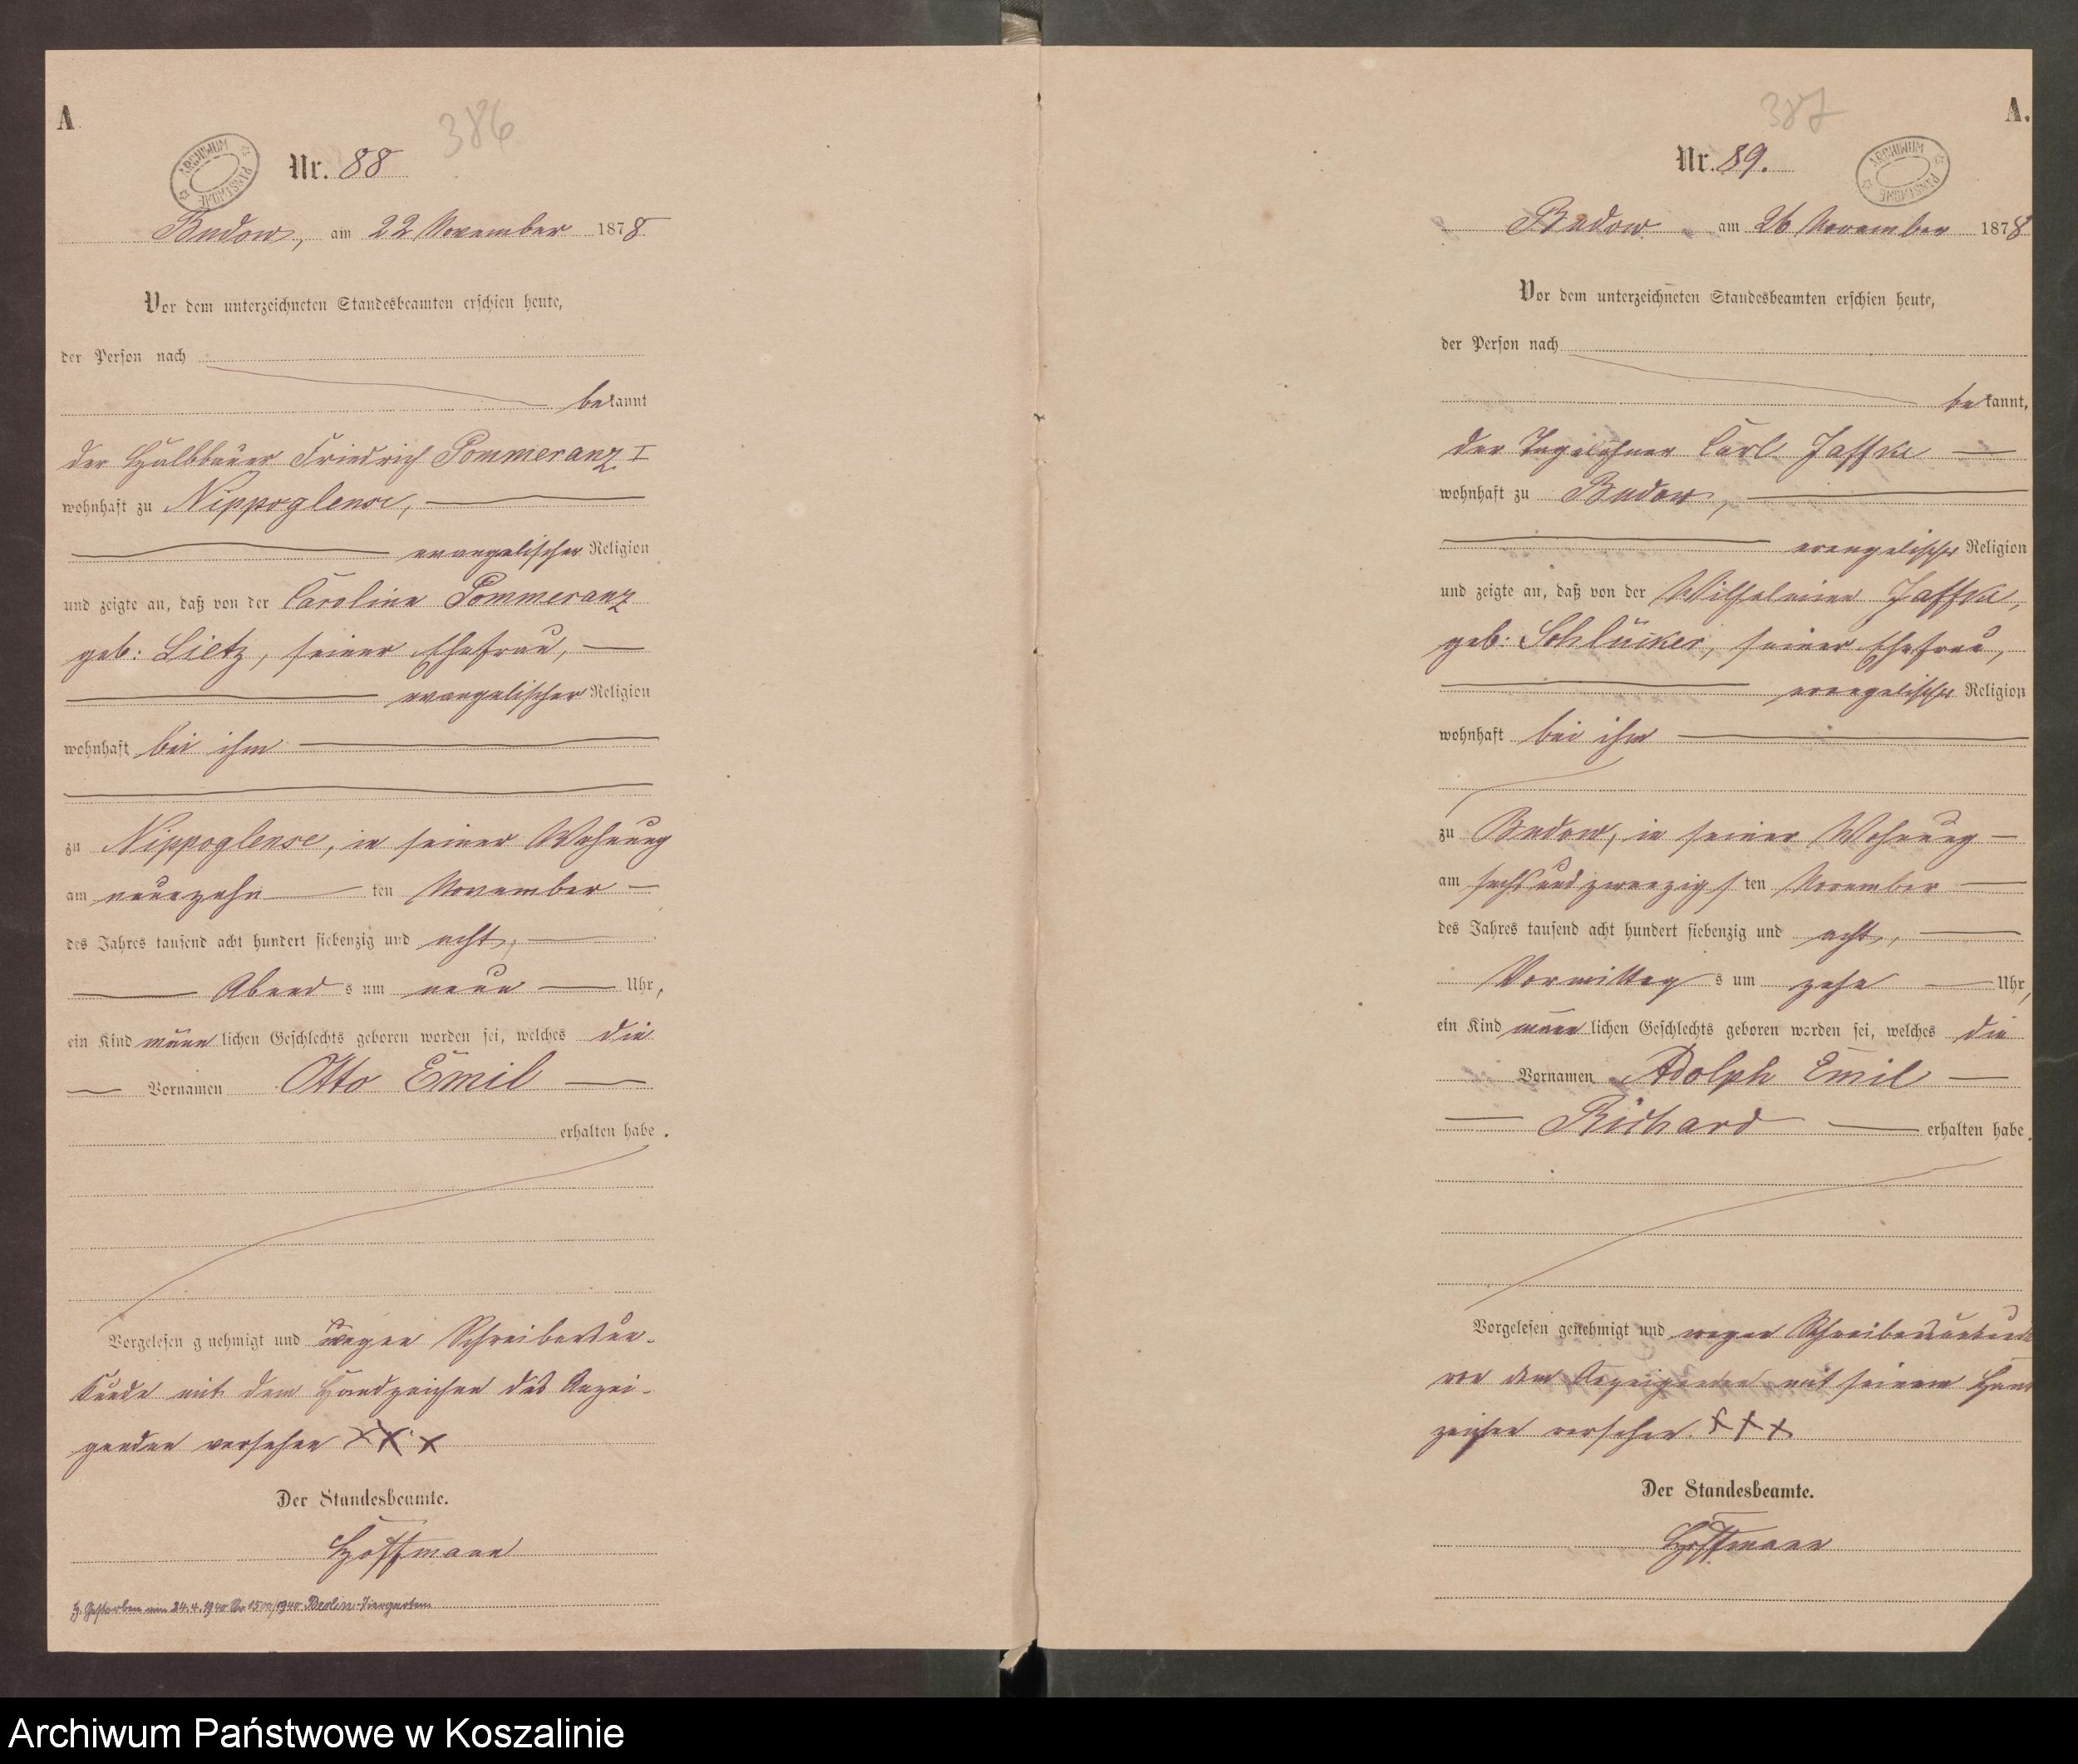 A
386
ARCHIWUM PAŃSTWOWE
Nr. 88
Budow, am 22 November 1878
Vor dem unterzeichneten Standesbeamten erschien heute,
der Person nach
bekannt
der Halbbauer Friedrich Pommeranz I
wohnhaft zu Nippoglense,
evangelischer Religion
und zeigte an, daß von der Caroline Pommeranz
geb: Lietz, seiner Ehefrau,
evangelischer Religion
wohnhaft bei ihm
zu Nippoglense, in seiner Wohnung
am neunzehn ten November
des Jahres tausend acht hundert siebenzig und acht,
Abend s um neun Uhr,
ein Kind männlichen Geschlechts geboren worden sei, welches die
Vornamen Otto Emil
erhalten habe.
Vorgelesen genehmigt und wegen Schreibensun-
kunde mit dem Handzeichen des Anzei-
genden versehen XXX
Der Standesbeamte.
Hoffmann
Gestorben am 24.4.1940 Nr 1500/1940 Berlin-Tiergarten
387
A.
ARCHIWUM PAŃSTWOWE
Nr. 89.
Budow am 26 November 1878
Vor dem unterzeichneten Standesbeamten erschien heute,
der Person nach
bekannt,
der Tagelöhner Carl Jaffke
wohnhaft zu Budow,
evangelischer Religion
und zeigte an, daß von der Wilhelmine Jaffke,
geb: Schlücker, seiner Ehefrau,
evangelischer Religion
wohnhaft bei ihm
zu Budow, in seiner Wohnung
am sechs und zwanzigs ten November
des Jahres tausend acht hundert siebenzig und acht,
Vormittag s um zehn Uhr,
ein Kind männlichen Geschlechts geboren worden sei, welches die
Vornamen Adolph Emil
Richard erhalten habe.
Vorgelesen genehmigt und wegen Schreibensunkunde
von dem Anzeigenden mit seinem Hand
zeichen versehen. XXX
Der Standesbeamte.
Hoffmann
Archiwum Państwowe w Koszalinie